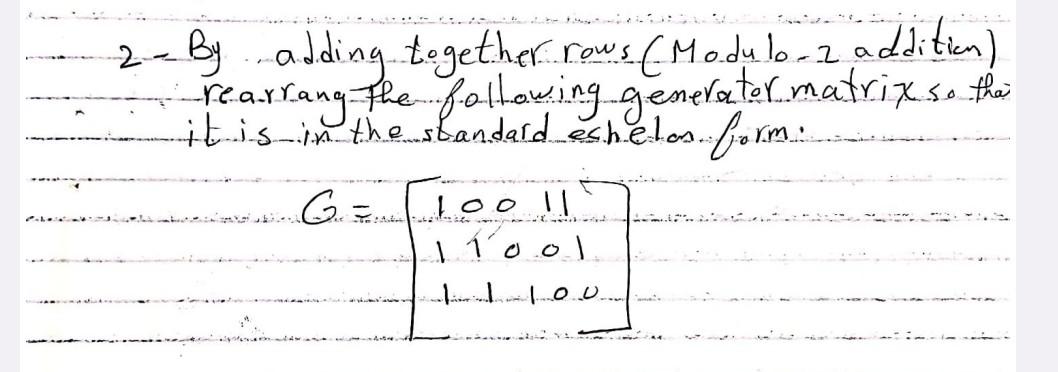 2- By adding together rows (Modulo-2 addition)
rearrang the following generator matrix so tha
it is in the standard echelon form:
G = [ 1 0 0 1 1
1 1 0 0 1
1 1 1 0 0 ]